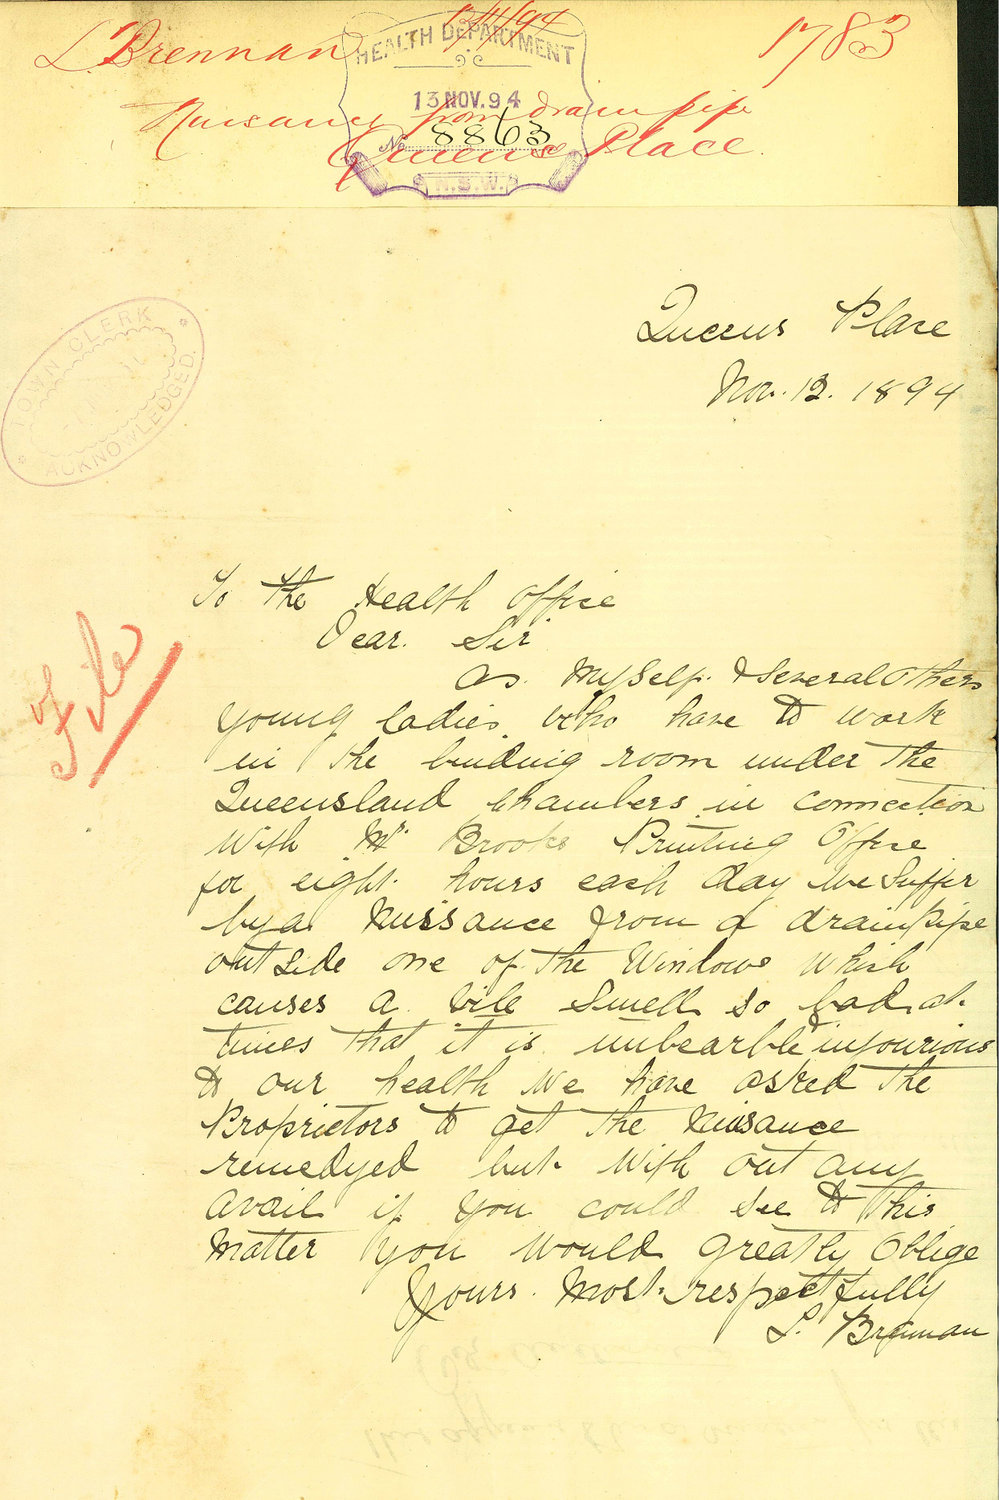 L. Brennan 13/11/94 1783
HEALTH DEPARTMENT
13 NOV. 94
Nuisance from drain pipe
No 8863
Queens Place
N.S.W.
Queens Place
Nov. 12. 1894
TOWN CLERK
ACKNOWLEDGED.
File
To the Health Office
Dear. Sir
As. Myself. & Several Others
young ladies who have to work
in the binding room under the
Queensland Chambers in connection
With Mr Brooks Printing Office
for eight hours each day We Suffer
by a Nuissance from a drain Pipe
out side one of the Windows Which
causes a vile Smell so bad at
times that it is unbearble & injourious
to our health We have asked the
Proprietors to get the Nuisance
remedyed but With out any
avail if you could see to this
Matter you would greatly Oblige
Yours. Most. respectfully
L. Brennan